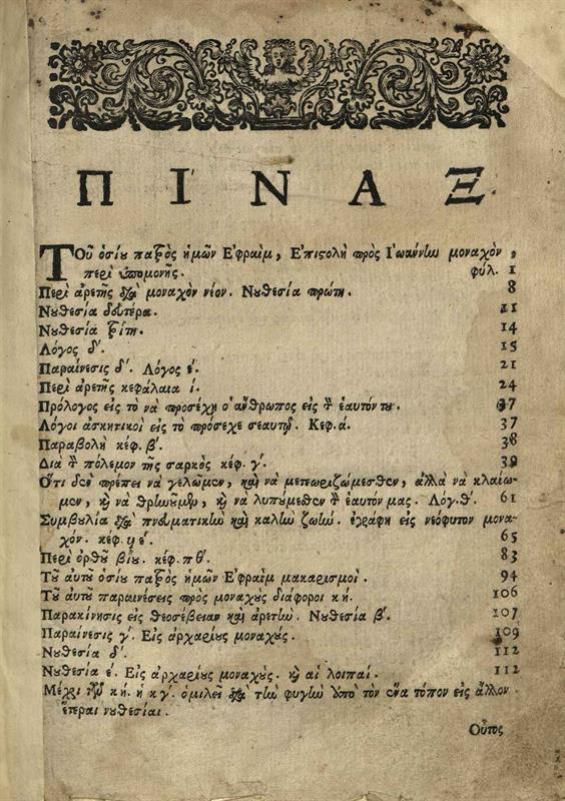 ΠΙΝΑΞ.
Τοῦ ὁσίου πατρὸς ἡμῶν Ἐφραὶμ, Ἐπιστολὴ πρὸς Ἰωάννίω μοναχὸν,
περὶ ὑπομονῆς. φύλ. 1
Περὶ ἀρετῆς μοναχὸν νέον. Νȣθεσία πρώτη. 8
Νȣθεσία δευτέρα. 11
Νȣθεσία τρίτη. 14
Λόγος δ'. 15
Παραίνεσις δ'. Λόγος έ. 21
Περὶ ἀρετῆς κεφάλαια ί. 24
Πρόλογος εἰς τὸ νὰ προσέχῃ ὁ ἄνθρωπος εἰς τ ἑαυτόν τȣ. 37
Λόγοι ἀσκητικοὶ εἰς τὸ πρόσεχε σεαυτῷ. Κεφ. ά. 37
Παραβολὴ κέφ. β'. 38
Διὰ τ πόλεμον τῆς σαρκὸς κέφ. γ'. 39
Ὅτι δὲν πρέπει νὰ γελῶμεν, καὶ νὰ μετεωριζώμεσθεν, ἀλλὰ νὰ κλαίω-
μεν, κ̀ νὰ θρίωῦμεν, κ̀ νὰ λυπȣμεθεν τ ἑαυτόν μας. Λόγ. θ'. 61
Συμβȣλία πνευματικίω καὶ καλίω ζωίω. ἐγράφη εἰς νεόφυτον μονα-
χόν. κέφ. 65
Περὶ ὀρθȣ βίȣ. κέφ. πθ'. 83
Τȣ αὐτȣ ὁσίȣ πατρὸς ἡμῶν Ἐφραὶμ μακαρισμοί. 94
Τȣ αὐτȣ παραινέσεις πρὸς μοναχȣς διάφοροι κή. 106
Παρακίνησις εἰς θεοσέβειαν καὶ ἀρετίω. Νȣθεσία β'. 107
Παραίνεσις γ'. Εἰς ἀρχαρίȣς μοναχȣς. 109
Νȣθεσία δ'. 112
Νȣθεσία έ. Εἰς ἀρχαρίȣς μοναχȣς. κ̀ αἱ λοιπαί. 112
Μέχρι τῶν κή. ἡ κγ'. ὁμιλεῖ τίω φυγίω ἀπὸ τὸν ἕνα τόπον εἰς ἄλλον
ἕτεραι νȣθεσίαι.
Οὗτος